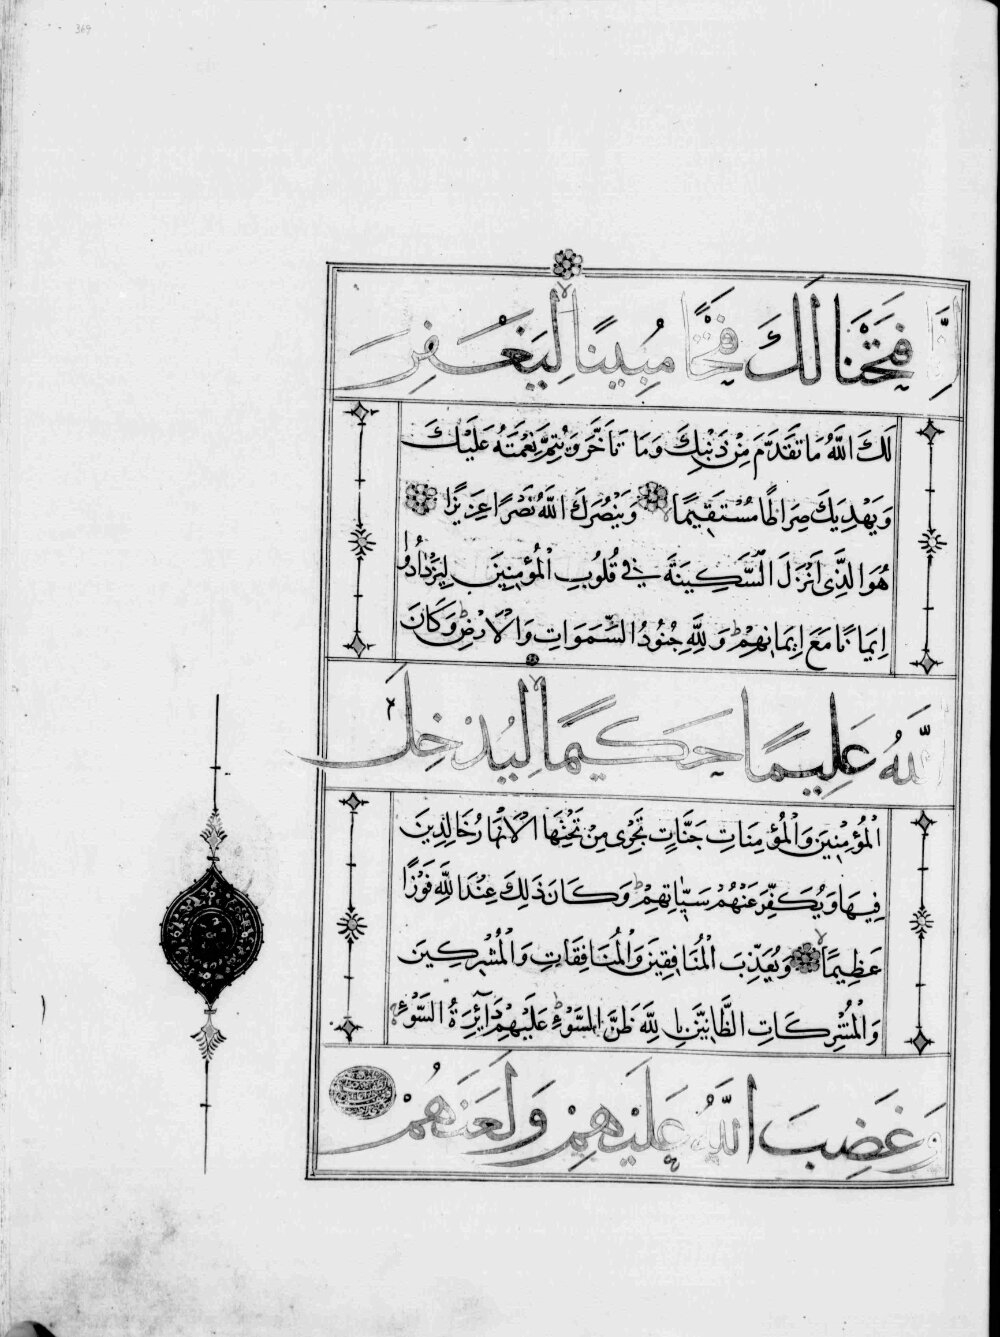 369
إِنَّا فَتَحْنَا لَكَ فَتْحًا مُبِينًا لِيَغْفِرَ
لَكَ اللَّهُ مَا تَقَدَّمَ مِنْ ذَنْبِكَ وَمَا تَأَخَّرَ وَيُتِمَّ نِعْمَتَهُ عَلَيْكَ
وَيَهْدِيَكَ صِرَاطًا مُسْتَقِيمًا وَيَنْصُرَكَ اللَّهُ نَصْرًا عَزِيزًا
هُوَ الَّذِي أَنْزَلَ السَّكِينَةَ فِي قُلُوبِ الْمُؤْمِنِينَ لِيَزْدَادُوا
إِيمَانًا مَعَ إِيمَانِهِمْ وَلِلَّهِ جُنُودُ السَّمَوَاتِ وَالْأَرْضِ وَكَانَ
اللَّهُ عَلِيمًا حَكِيمًا لِيُدْخِلَ
الْمُؤْمِنِينَ وَالْمُؤْمِنَاتِ جَنَّاتٍ تَجْرِي مِنْ تَحْتِهَا الْأَنْهَارُ خَالِدِينَ
فِيهَا وَيُكَفِّرَ عَنْهُمْ سَيِّاتِهِمْ وَكَانَ ذَلِكَ عِنْدَ اللَّهِ فَوْزًا
عَظِيمًا وَيُعَذِّبَ الْمُنَافِقِينَ وَالْمُنَافِقَاتِ وَالْمُشْرِكِينَ
وَالْمُشْرِكَاتِ الظَّانِّينَ بِاللَّهِ ظَنَّ السَّوْءِ عَلَيْهِمْ دَائِرَةُ السَّوْءِ
وَغَضِبَ اللَّهُ عَلَيْهِمْ وَلَعَنَهُمْ